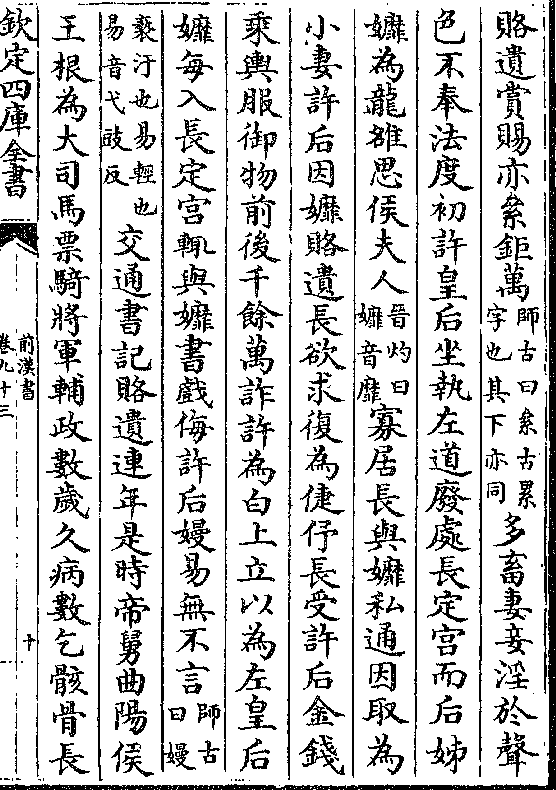 賂遺賞賜亦絫鉅萬師古曰絫古累字也其下亦同多畜妻妾淫於聲
色不奉法度初許皇后坐執左道廢處長定宫而后姊
嬺為龍雒思侯夫人晉灼曰嬺音靡寡居長與嬺私通因取為
小妻許后因嬺賂遺長欲求復為倢伃長受許后金錢
乘輿服御物前後千餘萬詐許為白上立以為左皇后
嬺每入長定宫輒與嬺書戲侮許后嫚易無不言師古曰嫚
褻汙也易輕也易音弋豉反交通書記賂遺連年是時帝舅曲陽侯
王根為大司馬票騎將軍輔政數歲久病數乞骸骨長
欽定四庫全書
前漢書
卷九十三
十